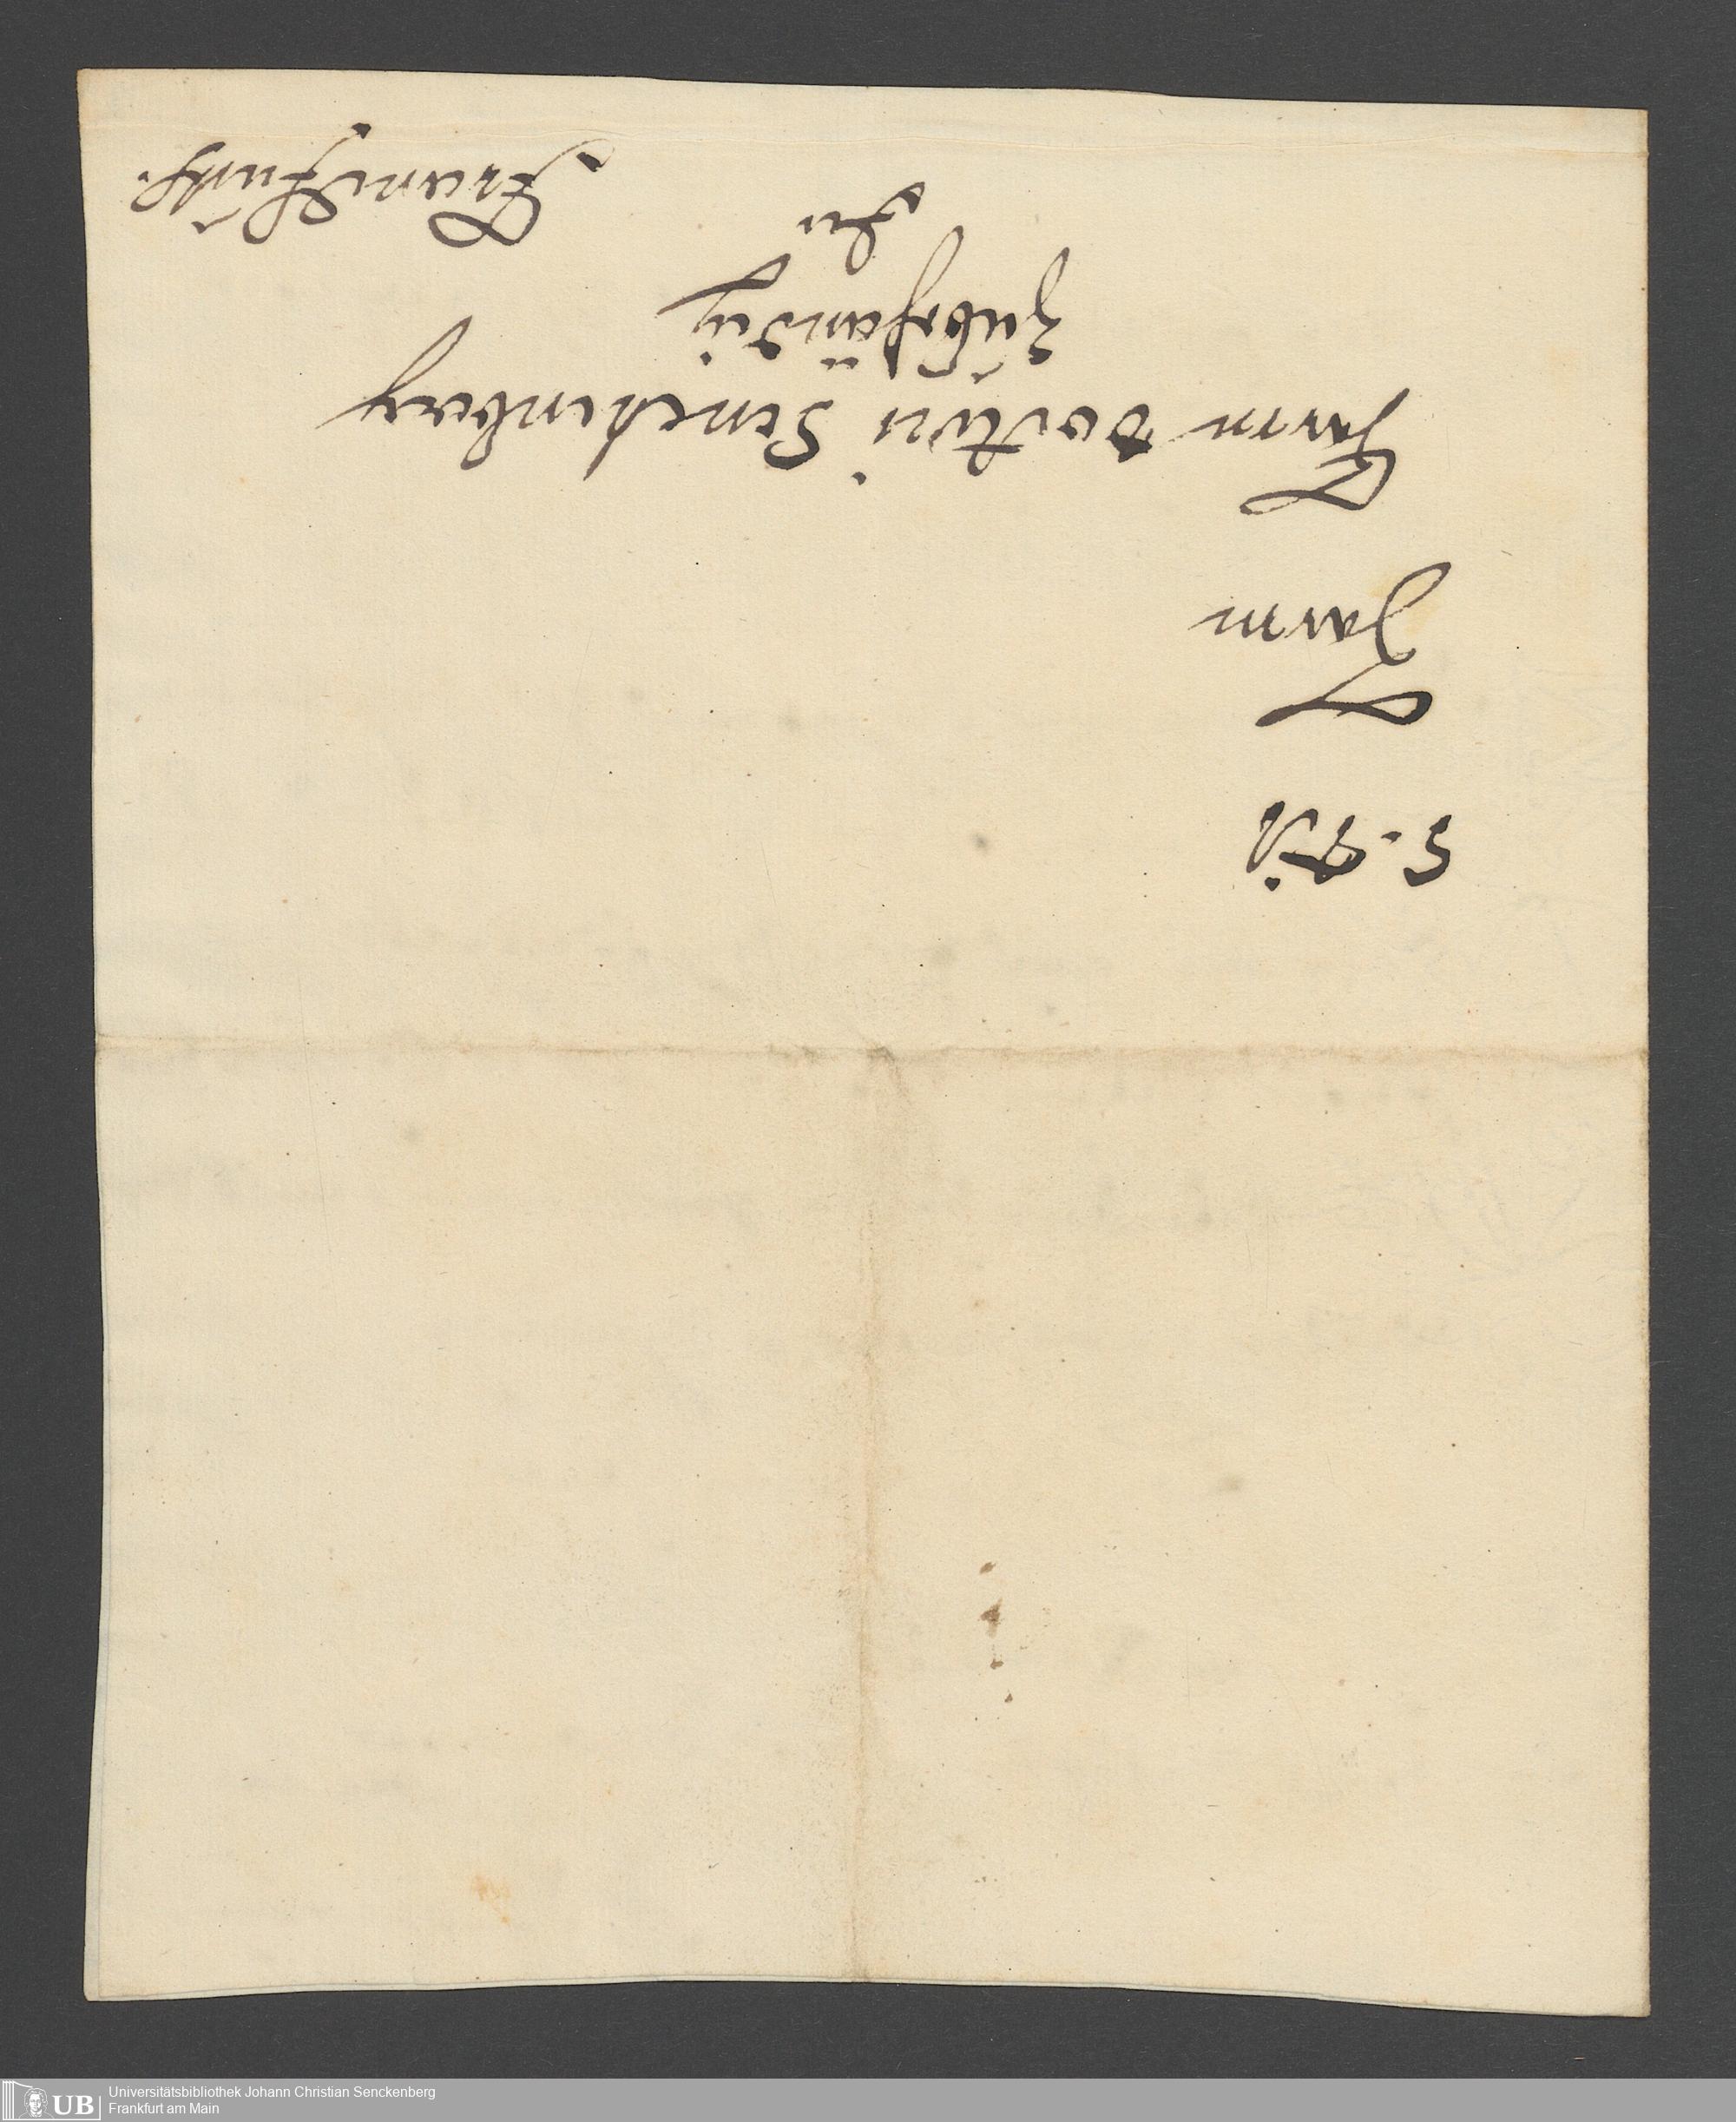 S. Tit
Herrn
Herrn doctori Senckenberg
Zubehändig
in
Franckfurth.
UB
Universitätsbibliothek Johann Christian Senckenberg
Frankfurt am Main